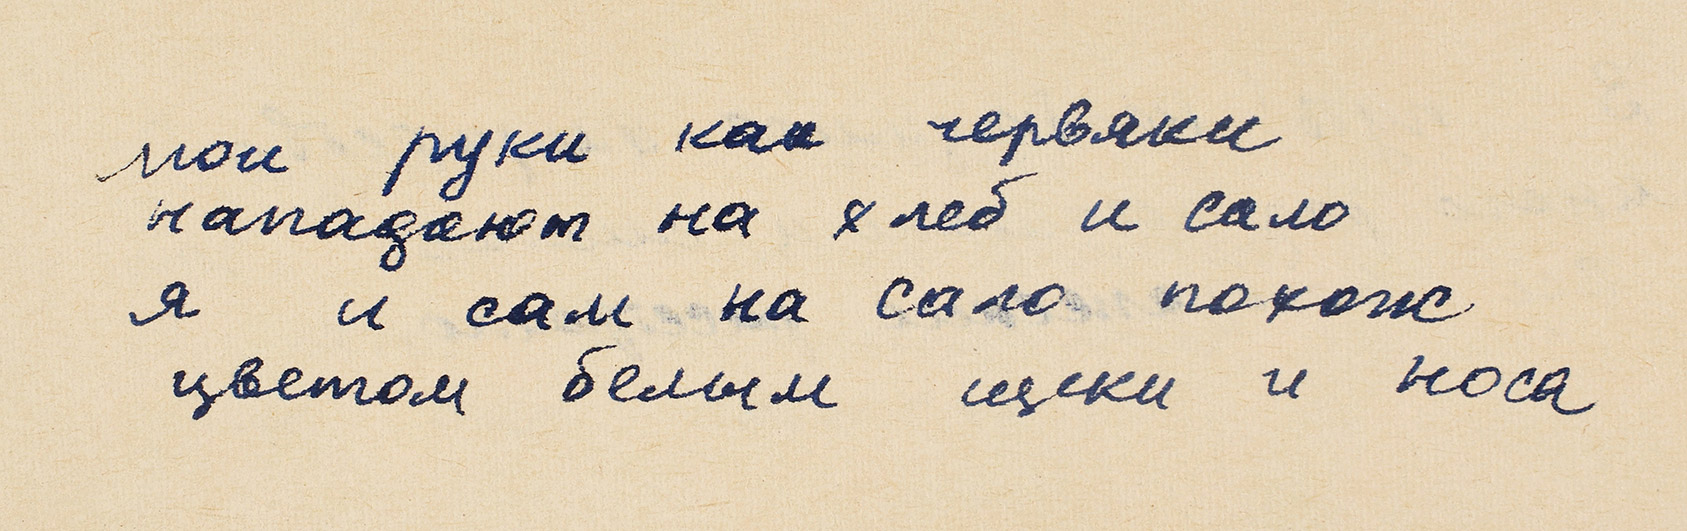 мои руки как червяки
нападают на хлеб и сало
я и сам на сало похож
цветом белым щеки и носа